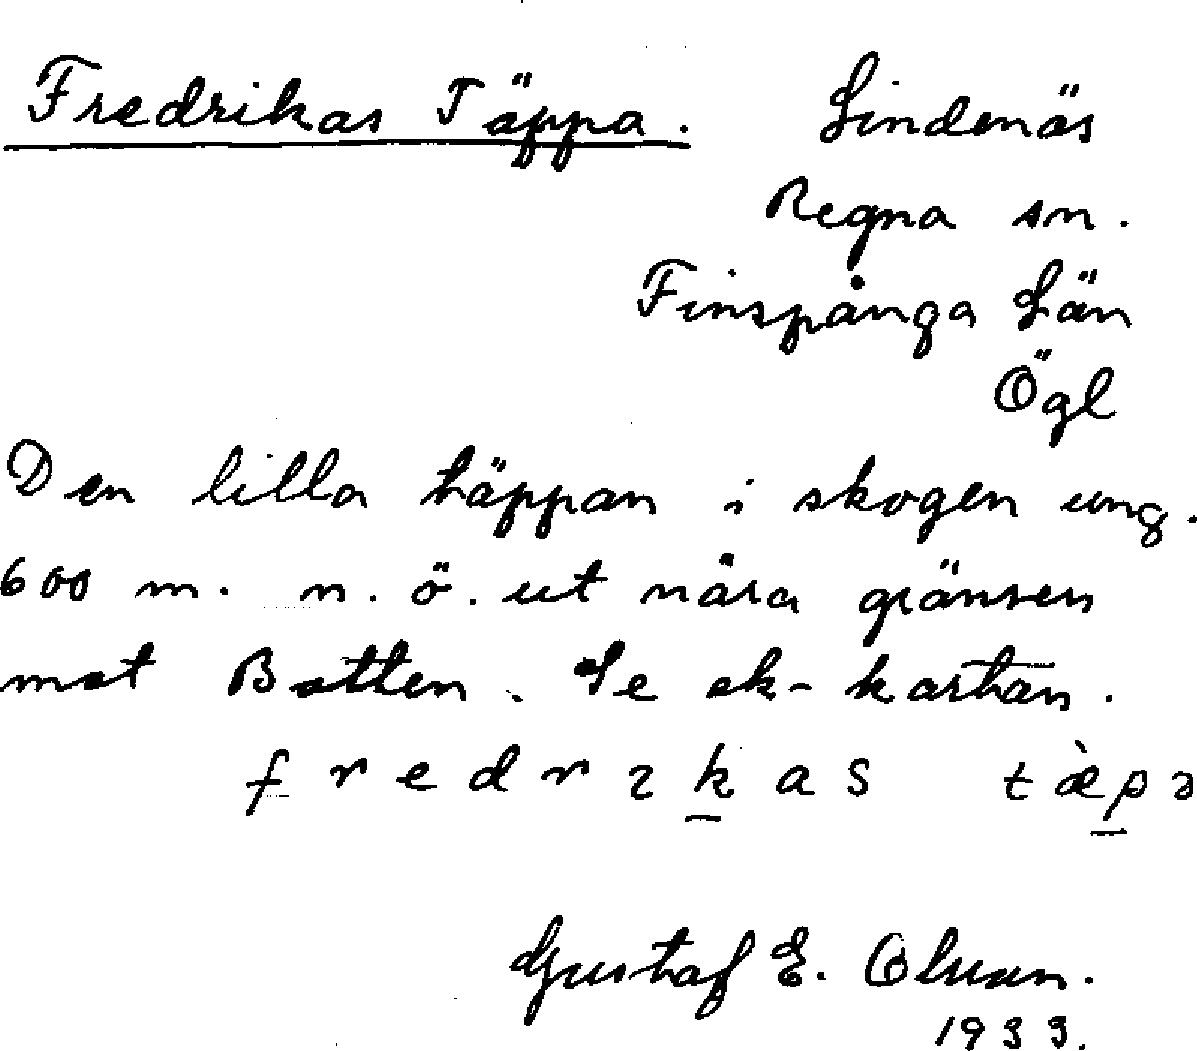 Fredrikas Täppa. Lindenäs
Regna sn.
Finspånga Län
Ögl
Den lilla täppan i skogen ung.
600 m. n.ö. ut nära gränsen
mot Botten. Se ek-kartan.
fredrɩkas tæ̀pə
Gustaf E. Olsson.
1933.